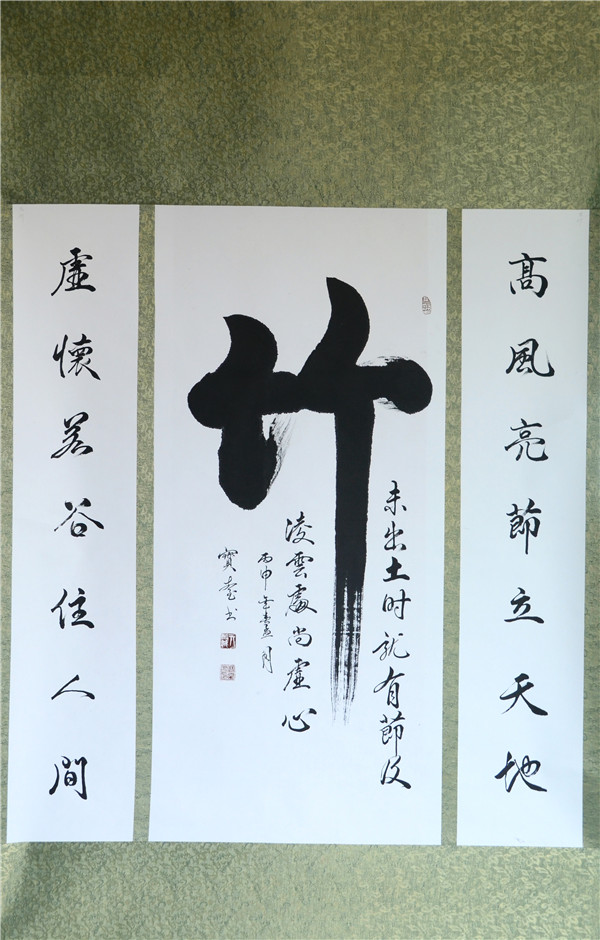 髙風亮節立天地
竹
未出土时就有節及
凌雲處尚虛心
丙申 月
寶 书
虛懷若谷住人間